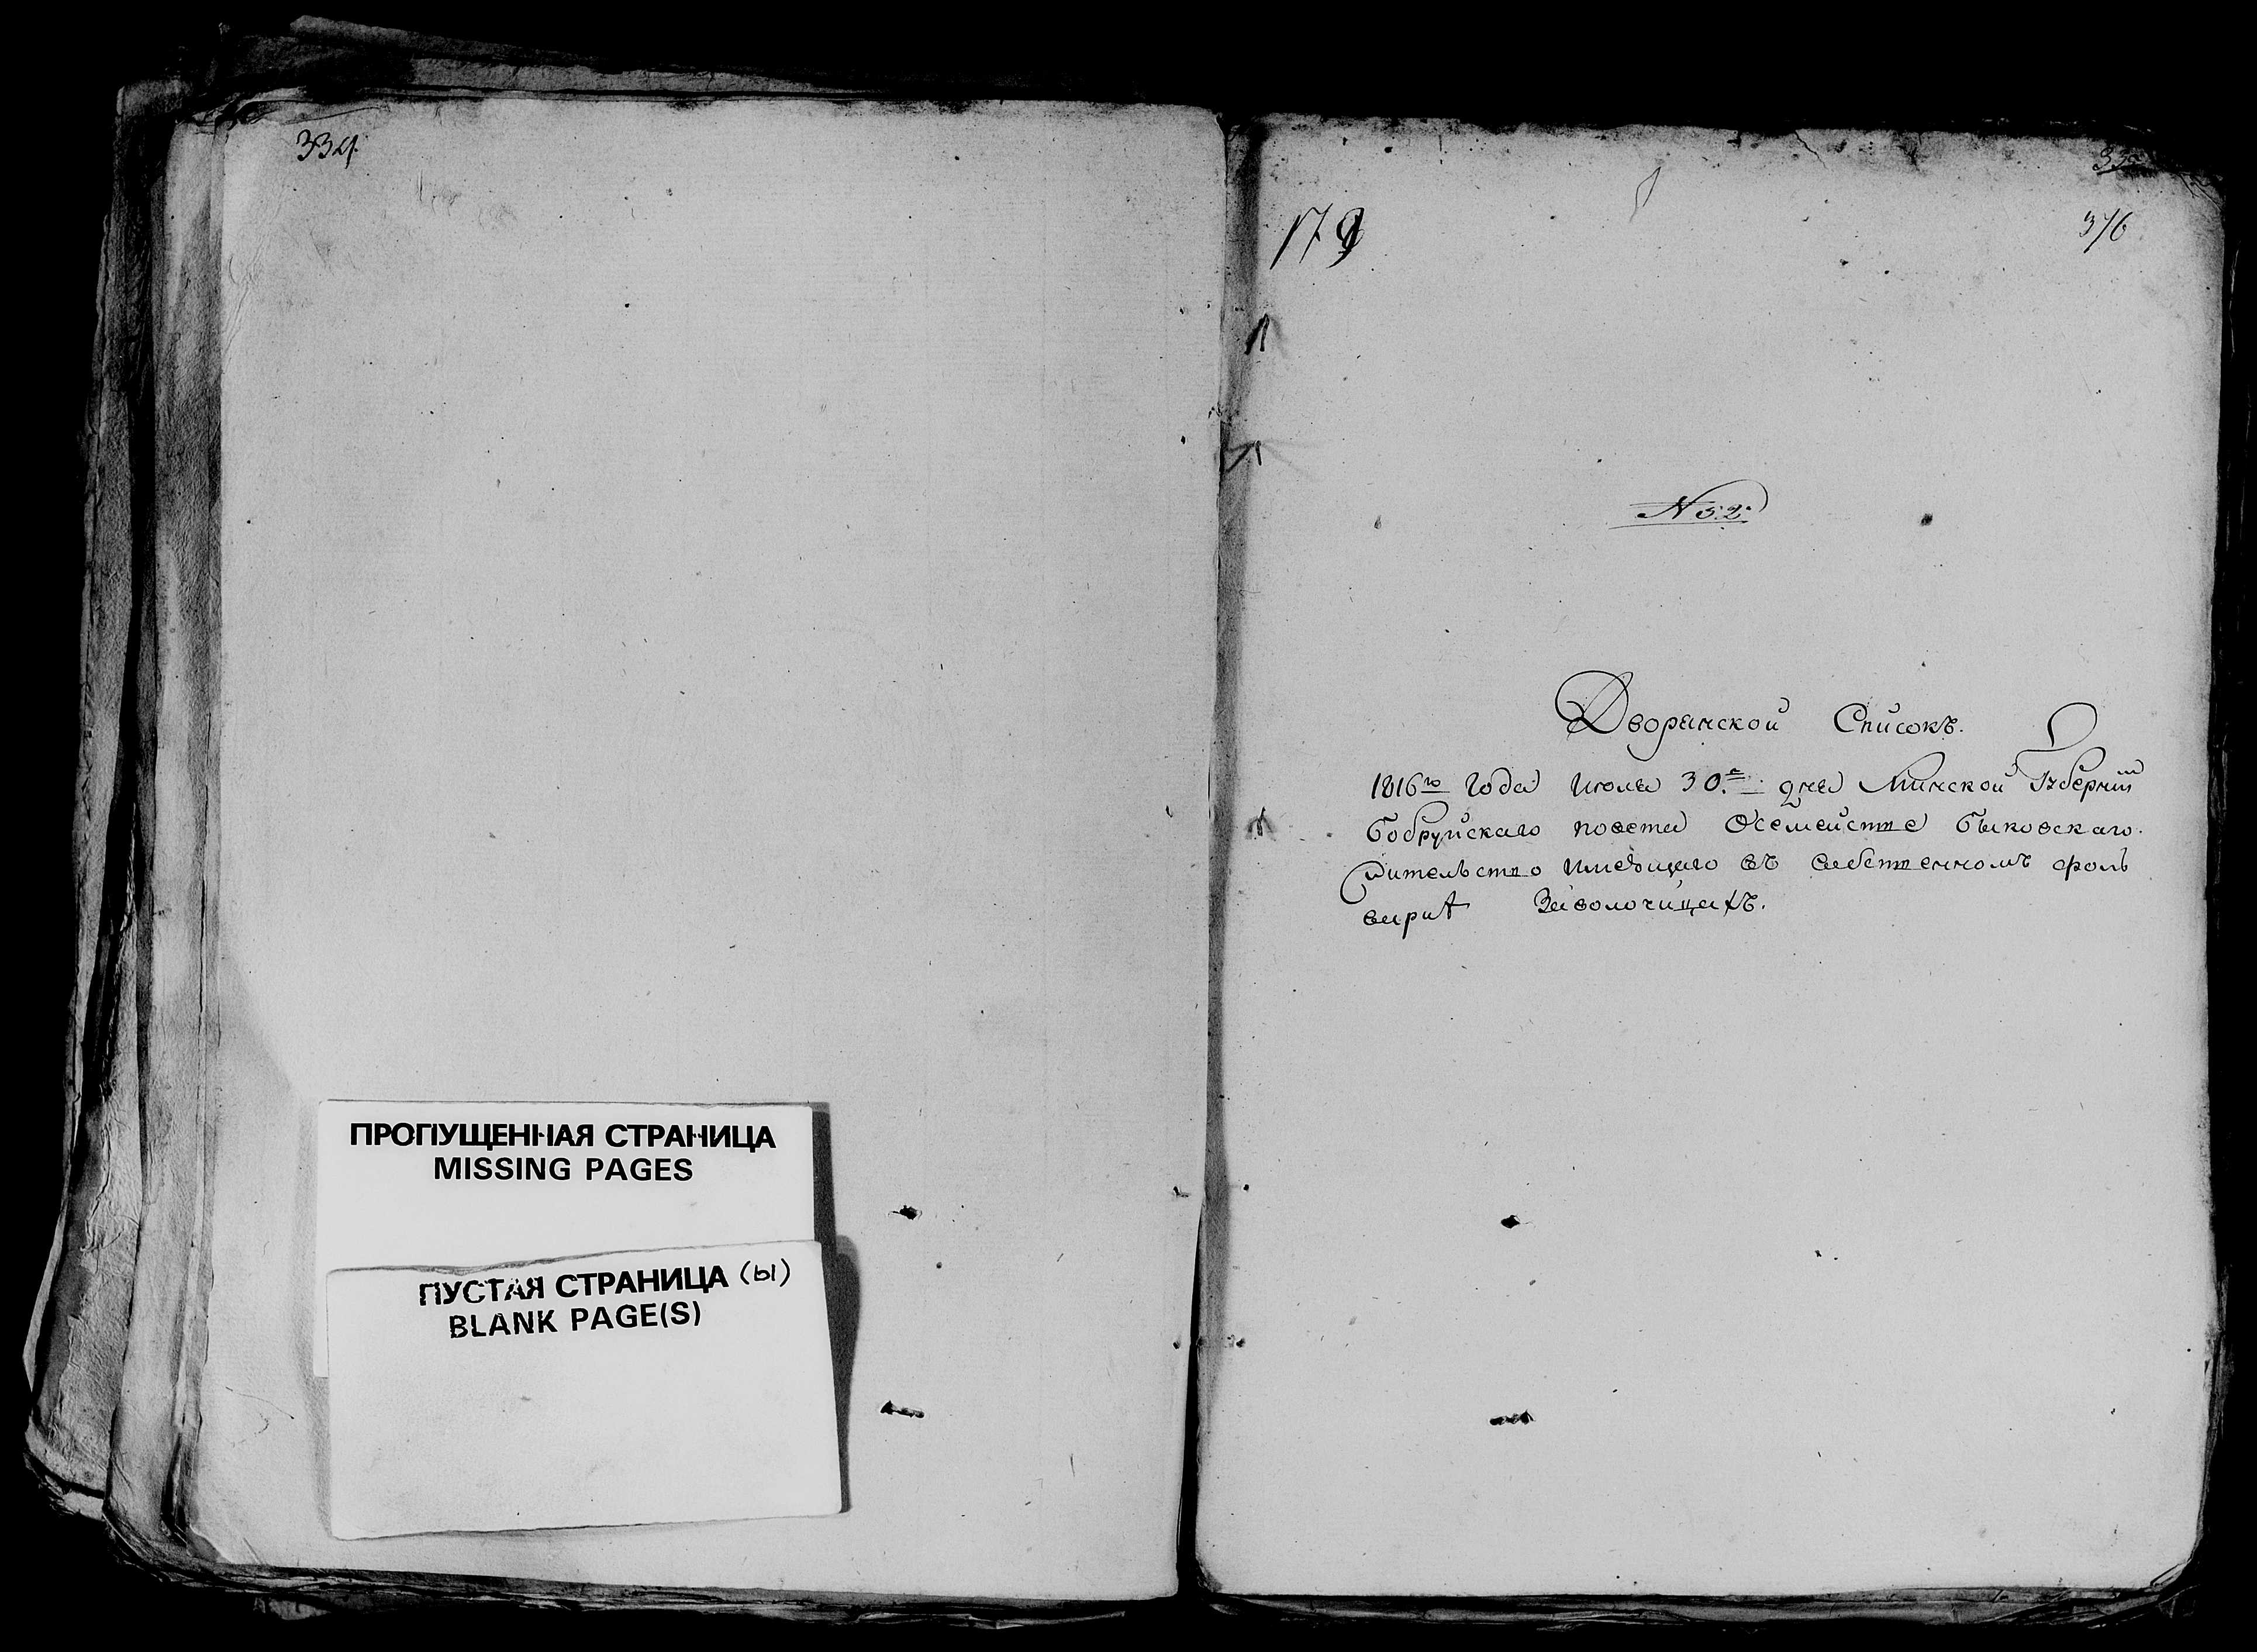 334
ПРОПУЩЕННАЯ СТРАНИЦА
MISSING PAGES
ПУСТАЯ СТРАНИЦА (Ы)
BLANK PAGE(S)
376
No: 2.
Дворянской Списокъ.
1816го года июля 30.е дня Минской Губернiи
Бобруйскаго повета Осемействе Быковскаго
Жительство имеющаго въ собственномъ фоль
варкѣ Заволочицахъ.